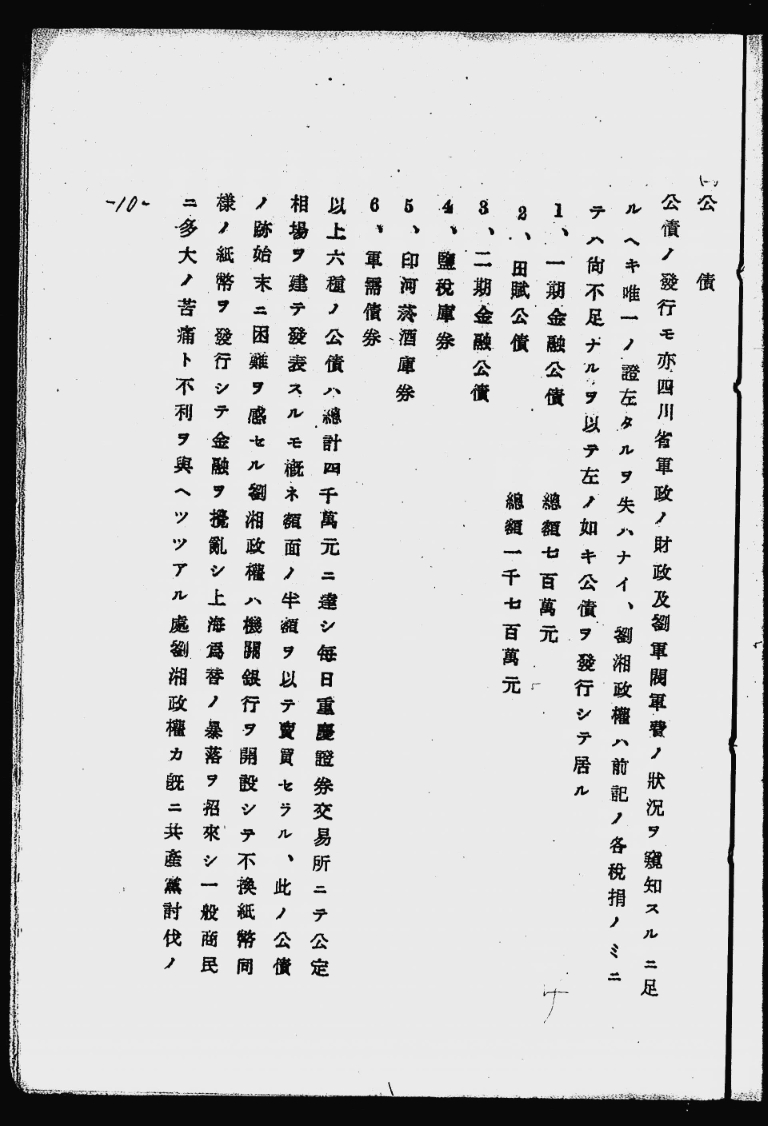 公債
公債ノ發行モ亦四川省軍政ノ財政及劉軍閥軍費ノ狀況ヲ窺知スルニ足
ルヘキ唯一ノ證左タルヲ失ハナイ、劉湘政權ハ前記ノ各稅捐ノミニ
テハ尙不足ナルヲ以テ左ノ如キ公債ヲ發行シテ居ル
1、一期金融公債 總額七百萬元
2、田賦公債 總額一千七百萬元
3、二期金融公債
4、鹽稅庫券
5、印河菸酒庫券
6、軍需債券
以上六種ノ公債ハ總計四千萬元ニ達シ每日重慶證券交易所ニテ公定
相場ヲ建テ發表スルモ槪ネ額面ノ半額ヲ以テ賣買セラル、此ノ公債
ノ跡始末ニ困難ヲ感セル劉湘政權ハ機關銀行ヲ開設シテ不換紙幣同
樣ノ紙幣ヲ發行シテ金融ヲ攪亂シ上海爲替ノ暴落ヲ招來シ一般商民
ニ多大ノ苦痛ト不利ヲ與ヘツツアル處劉湘政權カ旣ニ共產黨討伐ノ
-10-